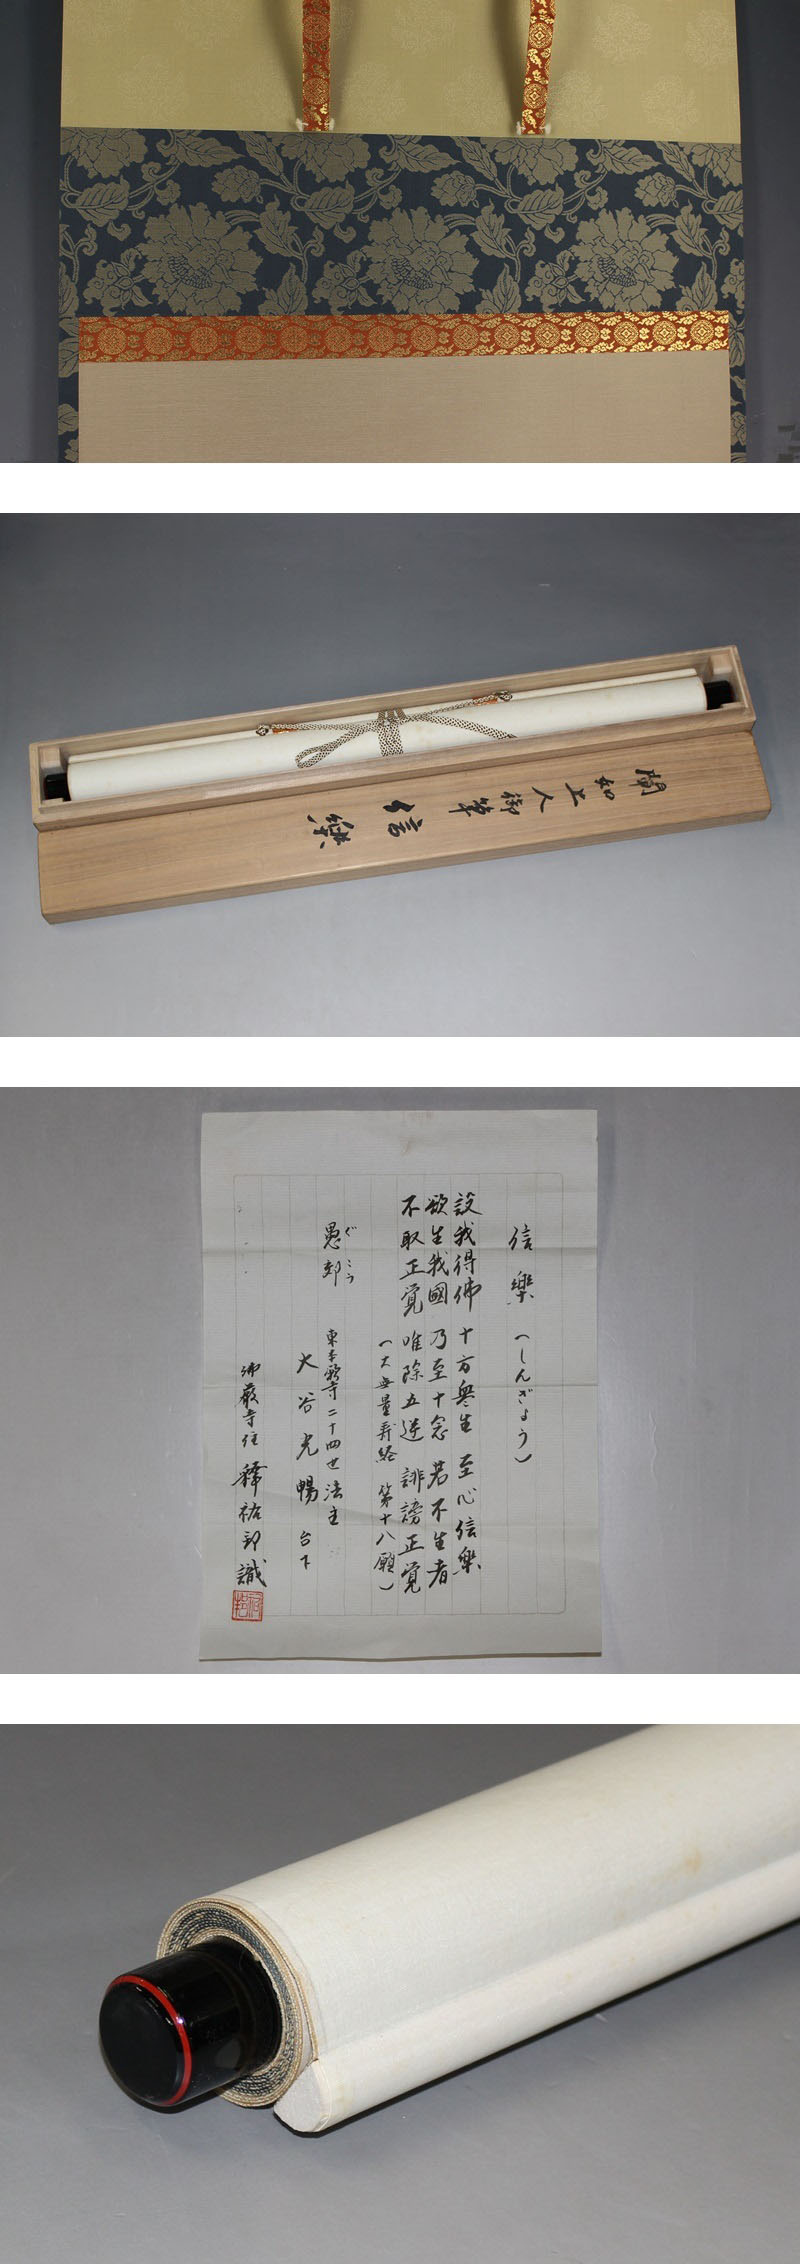 闡如上人御筆 信樂
信樂 (しんぎょう)
設我得佛 十方衆生 至心信樂
欲生我國 乃至十念 若不生者
不取正覚 唯除五逆 誹謗正覚
(大無量寿経 第十八願)
愚郊 ぐこう
東本願寺二十四世法主
大谷光暢 台下
佛厳寺住 釋祐郭 識